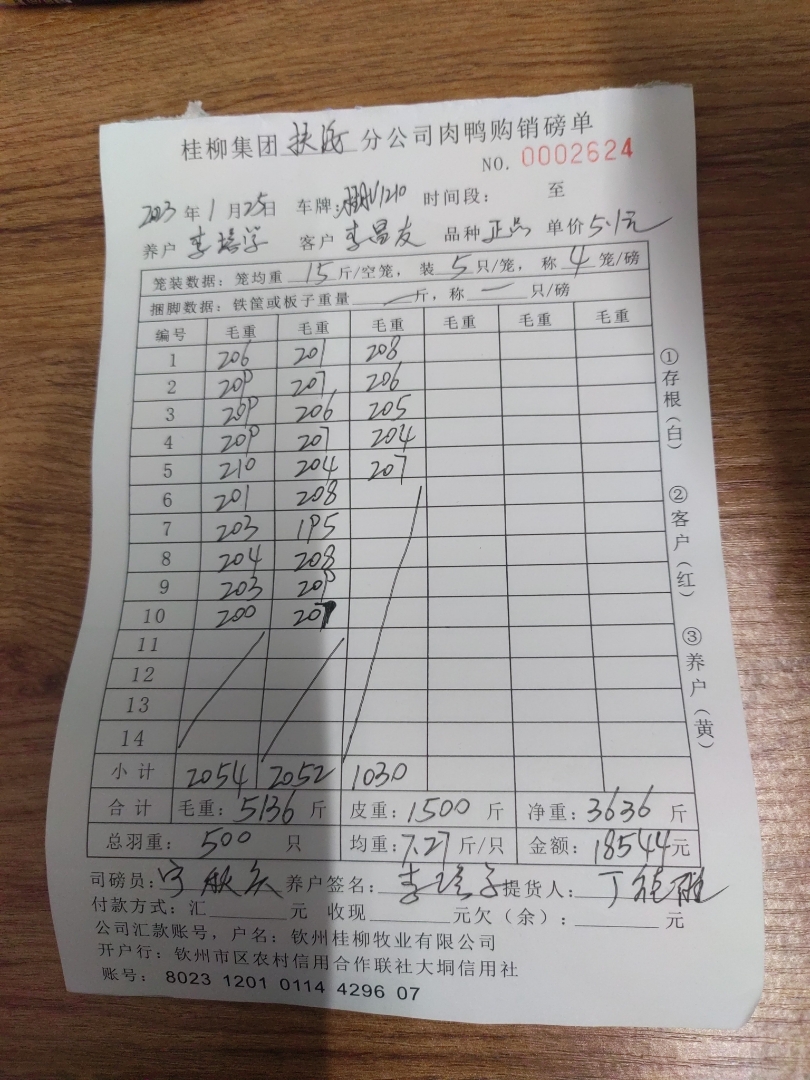 桂柳集团扶绥分公司肉鸭购销磅单
NO. 0002624
2023年1月25日 车牌: 时间段: 至
养户 李培学 客户 李昌友 品种 正品 单价 5.1元
笼装数据: 笼均重 15 斤/空笼, 装 5 只/笼, 称 4 笼/磅
捆脚数据: 铁筐或板子重量 一 斤, 称 一 只/磅
编号 毛重 毛重 毛重 毛重 毛重 毛重
1 206 201 208
2 209 207 206
3 209 206 205
4 209 207 204
5 210 204 207
6 201 208
7 203 195
8 204 208
9 203 209
10 200 207
11
12
13
14
小计 2054 2052 1030
合计 毛重: 5136 斤 皮重: 1500 斤 净重: 3636 斤
总羽重: 500 只 均重: 7.27 斤/只 金额: 18544元
司磅员: 养户签名: 李培学 提货人:
付款方式: 汇 元 收现 元欠(余): 元
公司汇款账号, 户名: 钦州桂柳牧业有限公司
开户行: 钦州市区农村信用合作联社大垌信用社
账号: 8023 1201 0114 4296 07
①存根(白)
②客户(红)
③养户(黄)